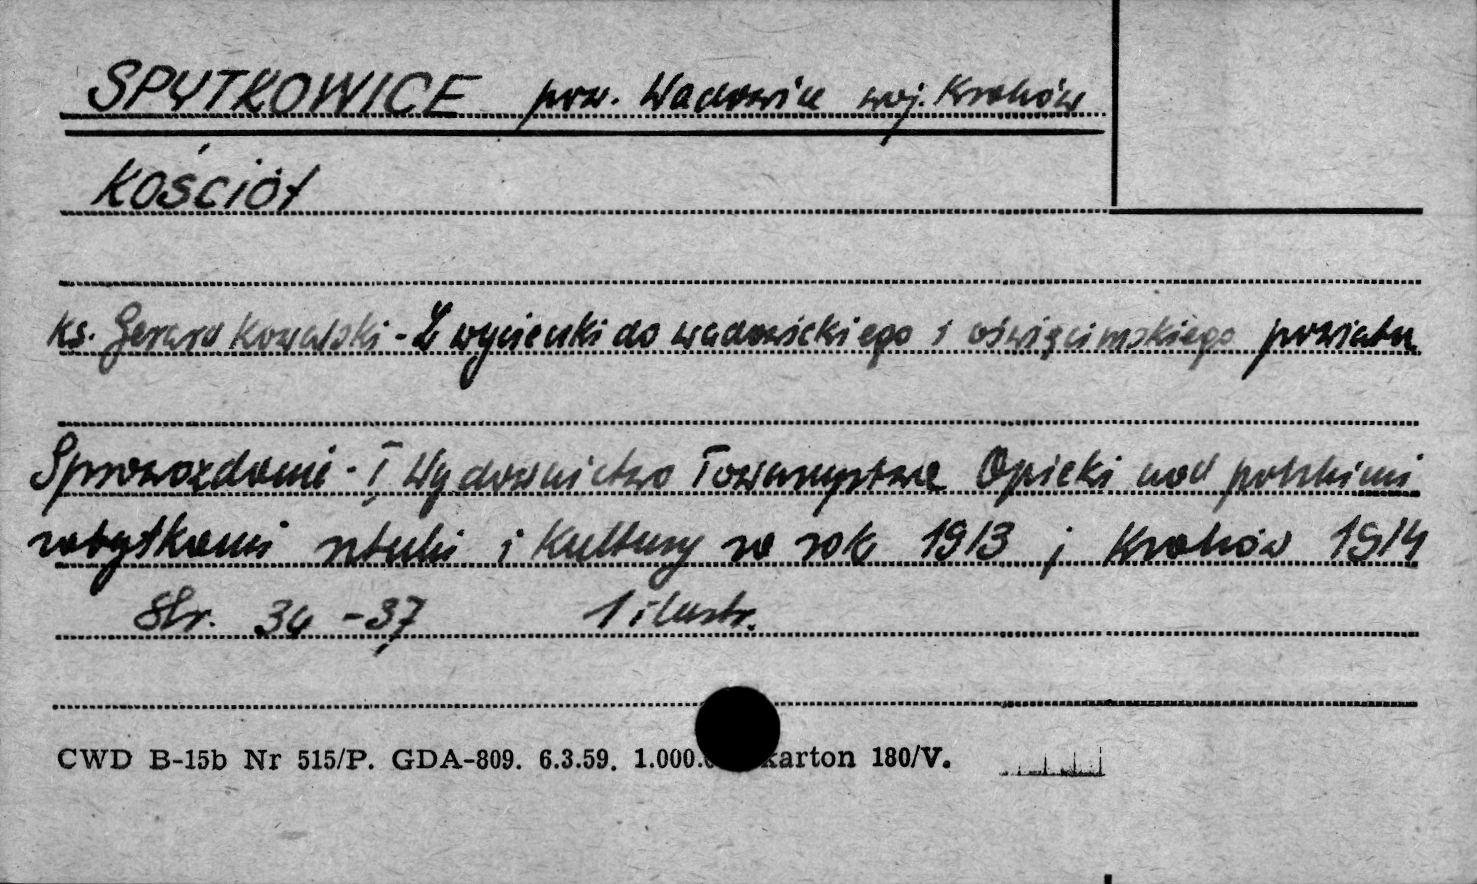 SPYTKOWICE pow. Wadowice woj. Kraków
KOŚCIÓŁ
ks. Gerard Kowalski - Z wycieczki do wadowickiego i oświęcimskiego powiatu
Sprawozdanie i Wydawnictwo Towarzystwa Opieki nad polskimi
zabytkami sztuki i kultury za rok 1913 ; Kraków 1914
Str. 34 - 37 1 ilustr.
CWD B-15b Nr 515/P. GDA-809. 6.3.59. 1.000. karton 180/V.